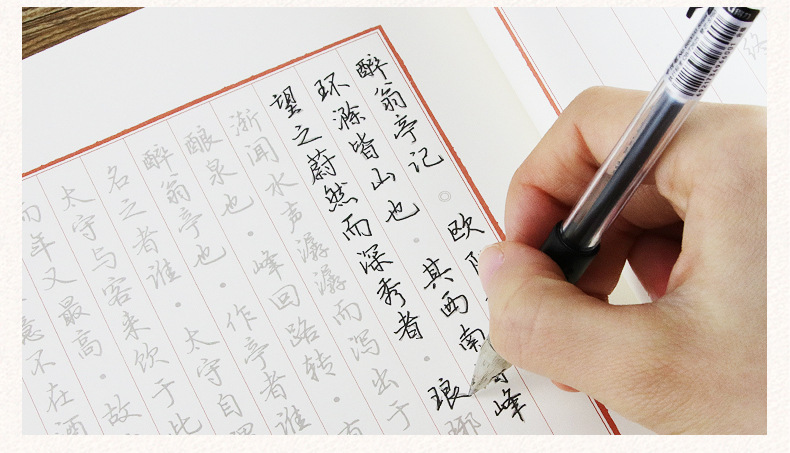 醉翁亭记◎欧
环滁皆山也·其西南峰
望之蔚然而深秀者·琅琊
渐闻水声潺潺而泻出于
酿泉也·峰回路转·有
醉翁亭也·作亭者谁
名之者谁·太守自谓
太守与客来饮于此
而年又最高·故
意不在酒